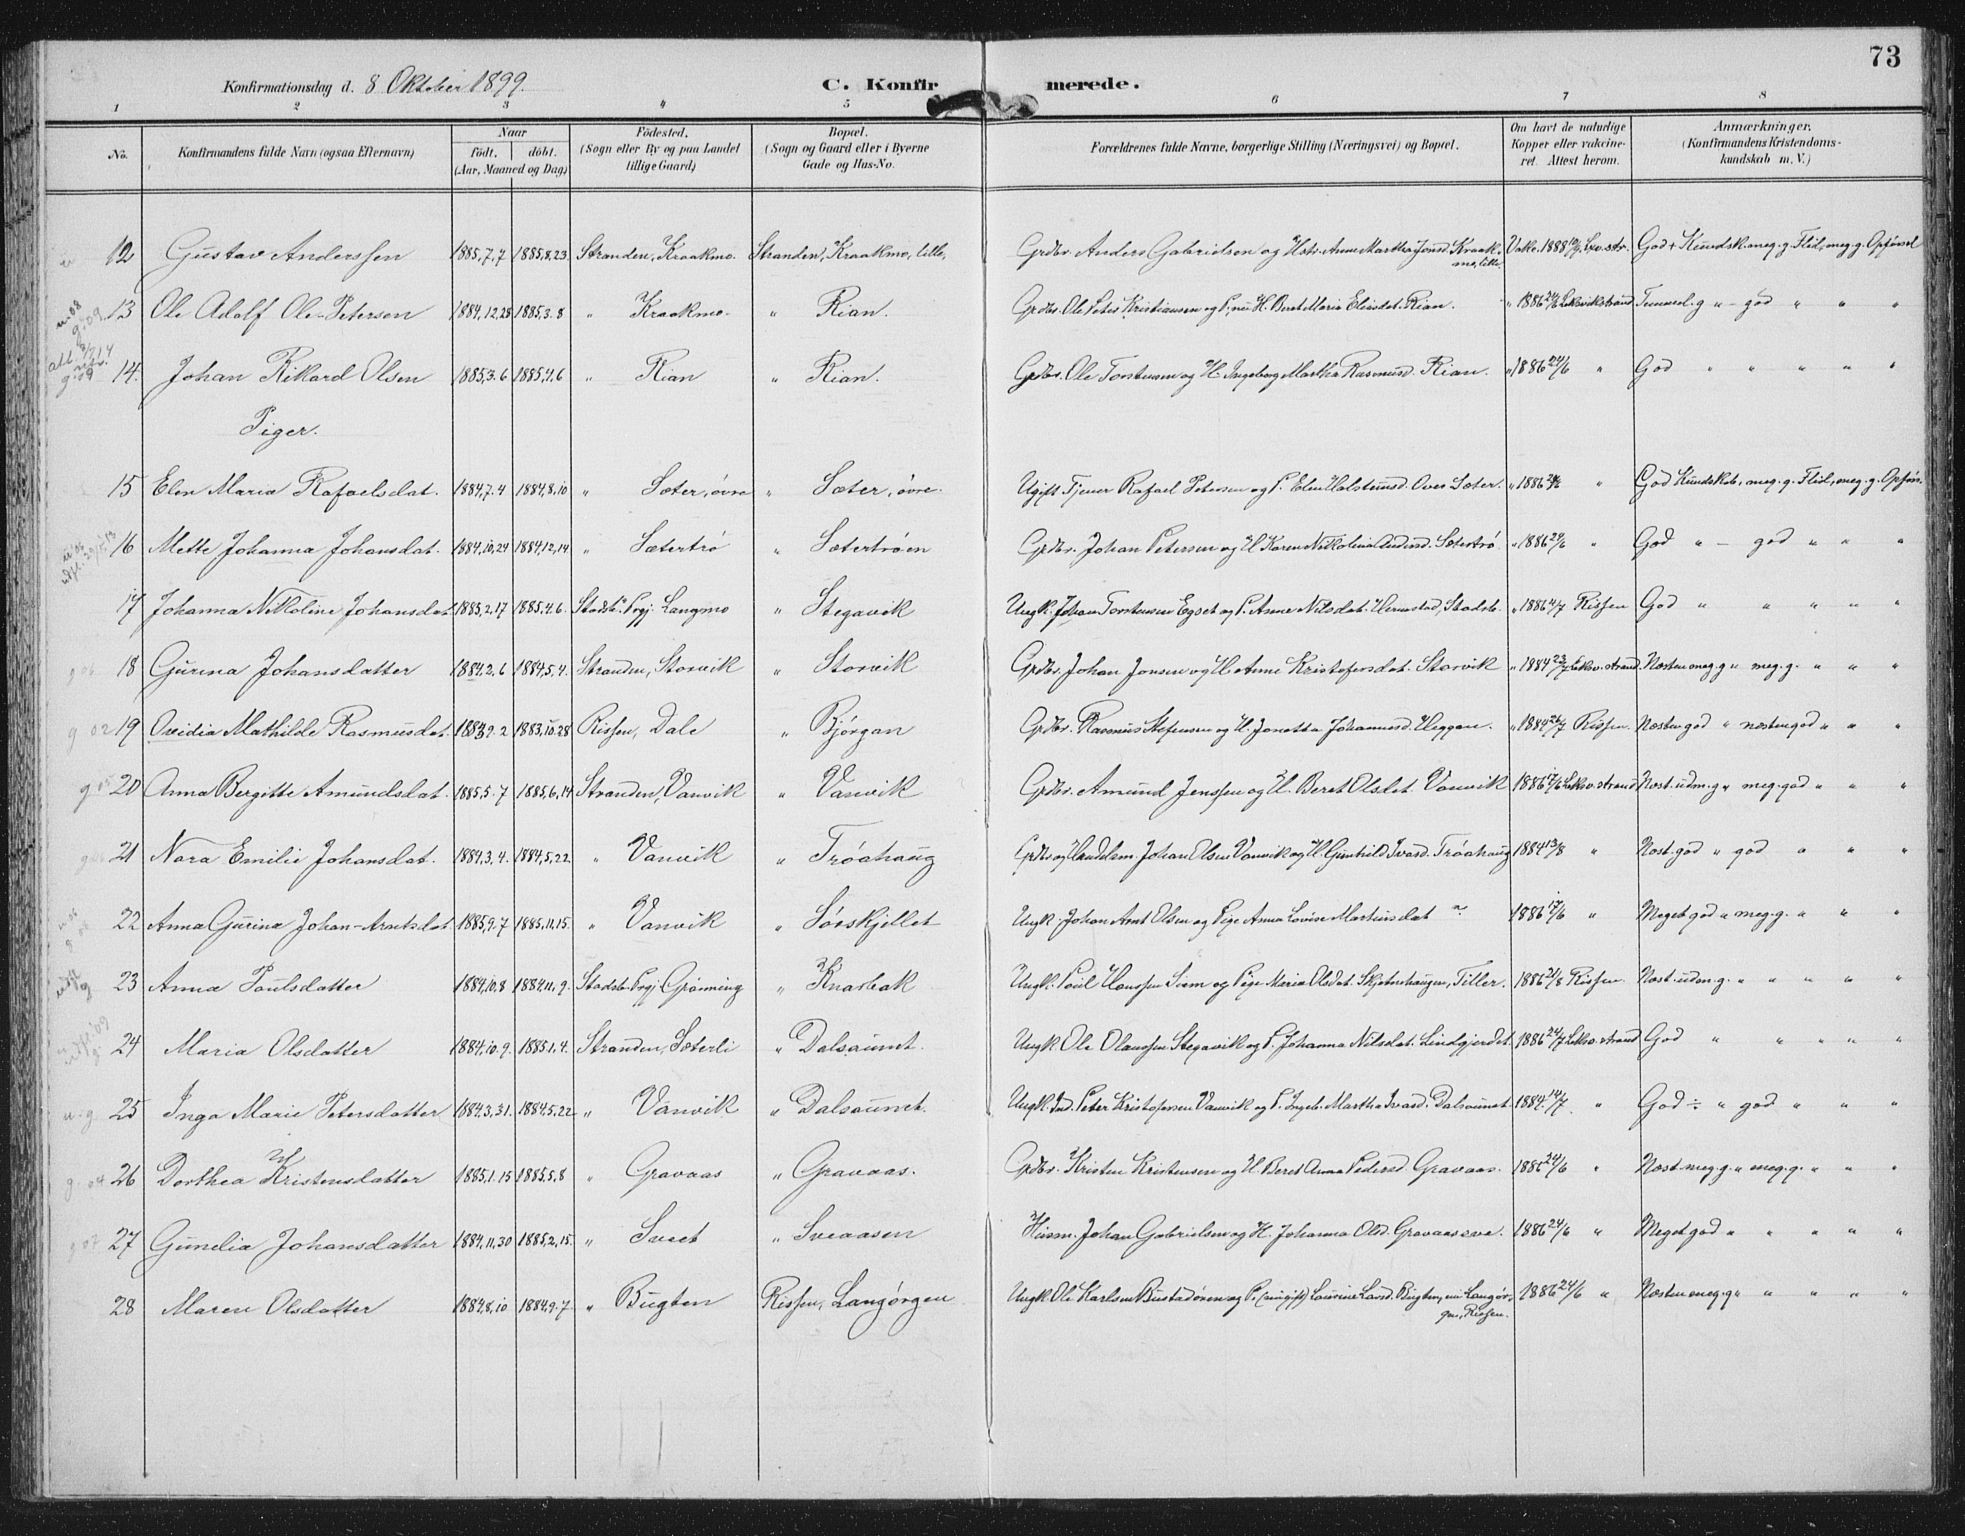 73
Konfirmationsdag d. 8 Oktober 1899.
C. Konfirmerede.
1 2 3 4 5 6 7 8
No. Konfirmandens fulde Navn (ogsaa Efternavn) Naar født, døbt. (Aar, Maaned og Dag) Fødested. (Sogn eller By og paa Landet tillige Gaard) Bopæl. (Sogn og Gaard eller i Byerne Gade og Hus-No. Forældrenes fulde Navne, borgerlige Stilling (Næringsvei) og Bopæl. Om havt de naturlige Kopper eller vakcineret. Attest herom. Anmærkninger. (Konfirmandens Kristendomskundskab m. V.)
12 Gustav Anderssen 1885,7,7 1885,8,23 Stranden, Kraakmo. Stranden, Kraakmo, lille, Grdbr. Anders Gabrielsen og Hstr. Anne Martha Jonsd. Kraakmo, lille. Vakc. 1888 God + Kundsk. meg. g. Flid, meg. g. Opførsel
13 Ole Adolf Ole-Petersen 1884,12,28 1885,3.8 " Kraakmo. " Rian. Grdbr. Ole Peter Kristiansen og H. Beret Maria Eliasdat. Rian. " 1886 24/6 Leksvikstrand Temmel. g " – god " " "
14. Johan Rikard Olsen 1885,3.6 1885,4,6 " Rian " Rian. Grdbr. Ole Torstensen og H. Ingeborg Martha Rasmusd. Rian. " 1886 24/6 " God " " " " "
Piger.
15 Elen Maria Rafaelsdat. 1884,7.4 1884,8,10 " Sæter, øvre " Sæter, øvre. Ugift Tjener Rafael Petersen og P. Elen Halstensd. Over Sæter. " 1886 24/6 " God Kundskb, meg. g. Flid, meg. g. Opførs.
16 Mette Johanna Johansdat. 1884,10,24 1884,12,14 " Sætertrø " Sætertrøen Grdbr. Johan Petersen og H Karen Nikolina Andersd. Sætertrø " 1886 24/6 " God " – god " " "
17 Johanna Nikoline Johansdat. 1885,2,17 1885,4.6. Stadsb. Prgj. Langmo " Stegavik Ungk. Johan Torstensen Egset og P. Anne Nilsdat. Hermstad, Stadsb. " 1886 Rissen God " " " " "
18 Gurina Johansdatter 1884,2,6 1884,5,4. Stranden, Storvik " Storvik Grdbr. Johan Jonsen og H. Anne Kristofersdat. Storvik " 1884 Leksv. strand. Næsten meg. g " meg. g. " " "
19 Ovidia Mathilde Rasmusdat. 1883,9.2 1883,10.28 Rissen, Dale " Bjørgan Grdbr. Rasmus Stefensen og H. Jonetta Johannesd. Heggan. " 1884 Rissen. Næsten god " næsten god " " "
20 Anna Bergitte Amundsdat. 1885,5.7 1885,6,14 Stranden, Vanvik " Vanvik Grdbr. Amund Jenssen og H. Beret Olsdt. Vanvik 1886 17/6 Leksv. strand Næst. udm. g " meg. god " " "
21 Nora Emilie Johansdat. 1884,3,4. 1884,5,22. " Vanvik " Trøahaug Grdbr og Handelsm. Johan Olsen Vanvik og H Gunhild Ivarsd. Trøahaug 1884 13/8 " Næst. god " god " " "
22 Anna Gurina Johan-Arntsdat. 1885,9.7 1885,11,15. " Vanvik " Sørskjellet Ungk. Johan Arnt Olsen og Pige Anna Lovise Martinsdat " 1886 17/6 " Meget god " meg. g. " " "
23 Anna Paulsdatter 1884,10,8 1884,11,9. Stadsb. Prgj. Grønning " Knarbak Ungk. Paul Hanssen Siem og Pige Maria Olsdat. Skjetnehaugen, Tiller. 1886 21/8 Rissen. Næst. udm. g. " " " " "
24 Maria Olsdatter 1884,10.9. 1885,1,4. Stranden, Sæterli " Dalsaunet. Ungk. Ole Olaussen Stegavik og P. Johanna Nilsdat. Lindgjerdet. 1886 24/7 Leksv. strand God " " " " "
25 Inga Marie Petersdatter 1884,3,31. 1884,5,22. " Vanvik " Dalsaunet. Ungk. Ind. Peter Kristofersen Vanvik og P. Ingeb. Martha Ivarsd. Dalsaunet. 1884 14/7. " God ÷ " god " " "
26 Dorthea Kristensdatter 1885,1.15 1885,5,8 " Gravaas " Gravaas. Grdbr. Kristen Kristensen og H Beret Anna Pedersd. Gravaas. 1886 24/6 " Næst. meg. g. " meg. g. " " "
27 Gunelia Johansdatter 1884,11,30 1885,2,15. " Sveet " Sveaasen Husm. Johan Gabrielsen og H. Johanna Olsd. Gravaassve. 1886 24/6 " Meget god " " " " "
28 Maren Olsdatter 1884,8,10 1884,9.7. " Bugten Rissen, Langørgen Ungk. Ole Karlsen Bustadøren og P. (nu gift) Laurine Larsd. Bugten, nu Langørgen, Rissen. 1886 24/6 " Næsten meg. g " " " " "